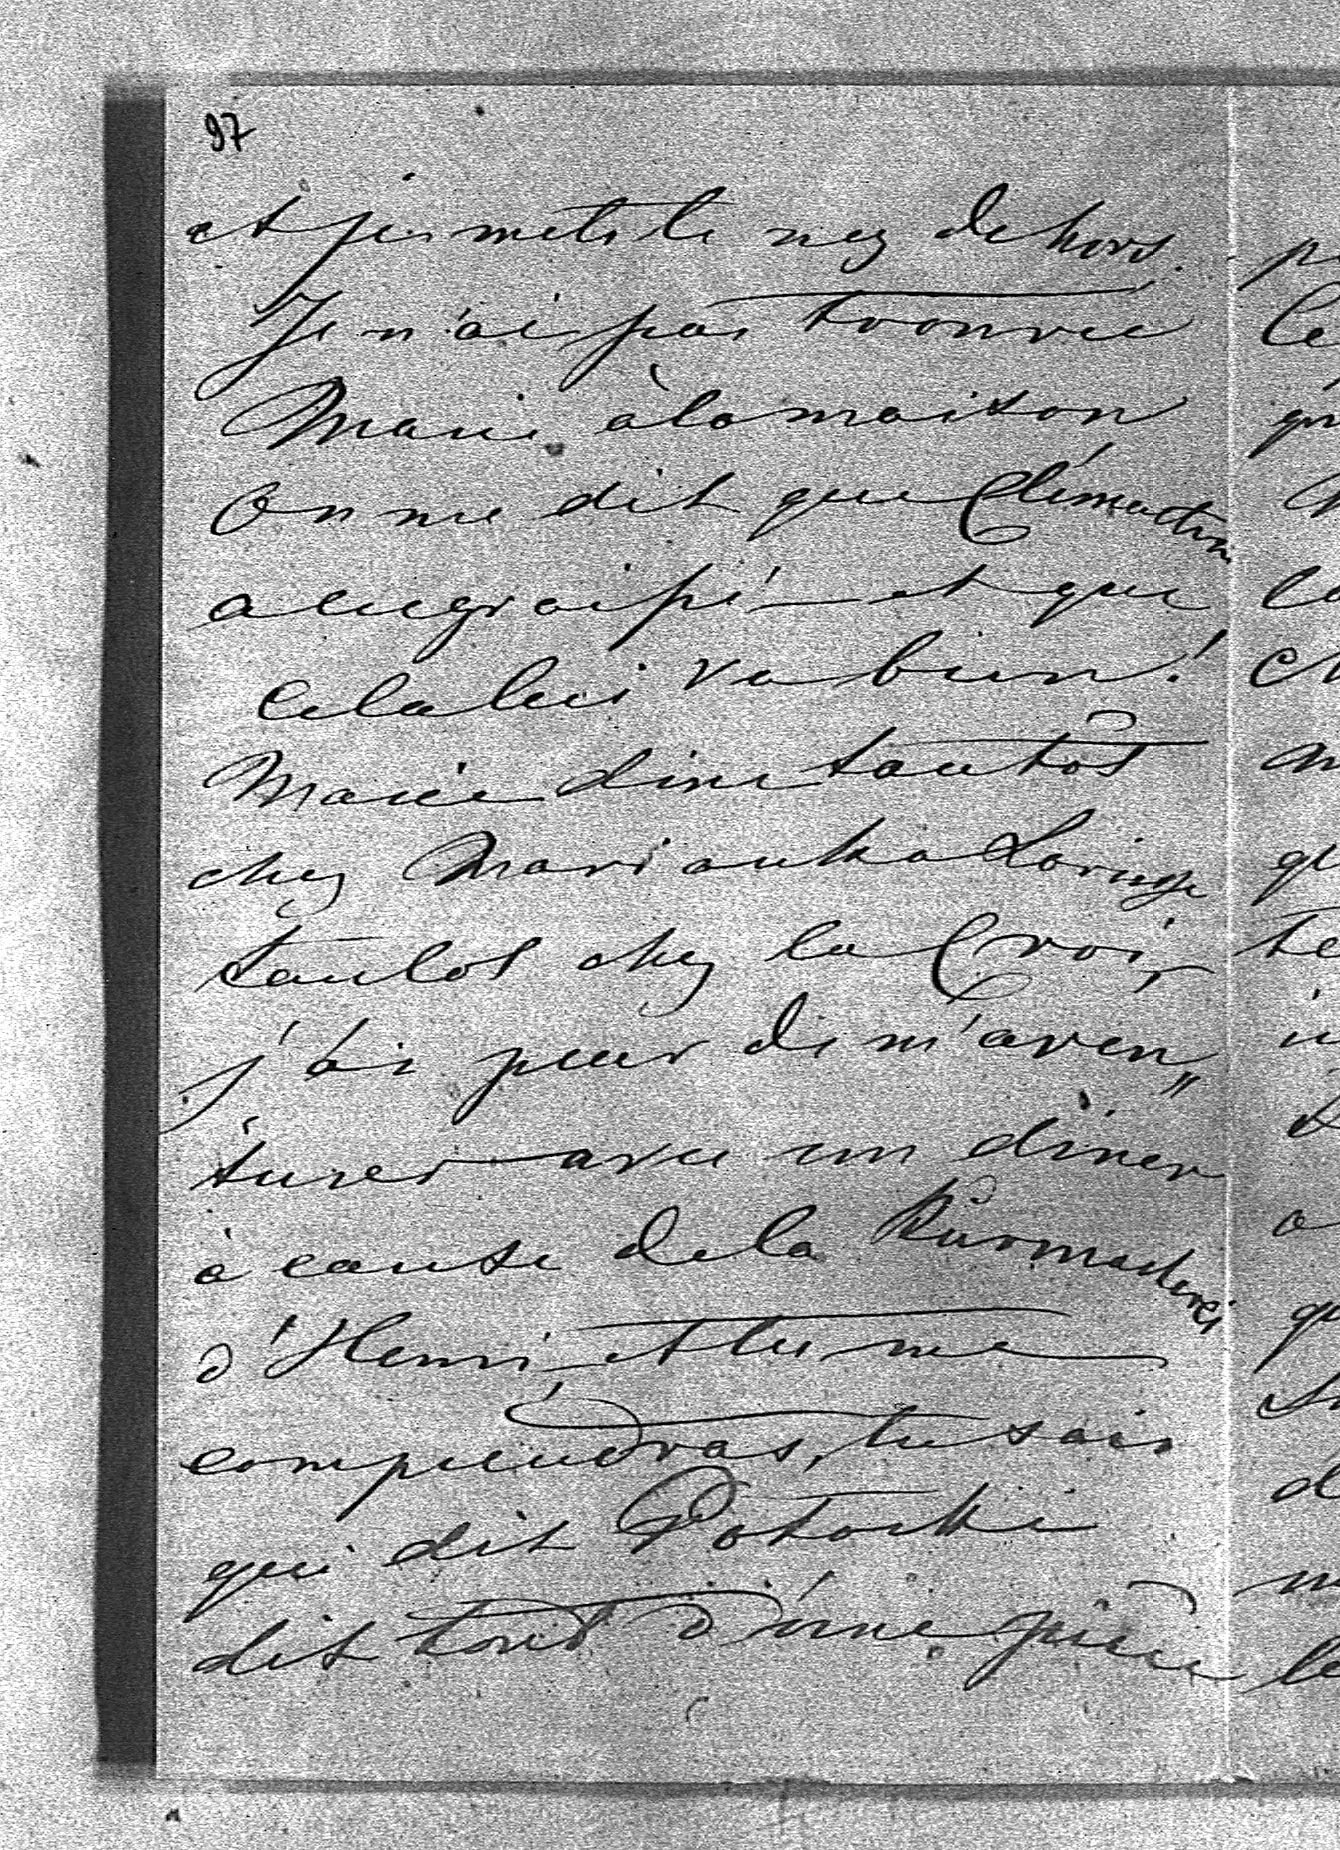 97
et je mets le nez dehors.
Je n'ai pas trouvé
Marie à la maison
On me dit que Clémentine
a engraipé et que
cela lui va bien!
Marie dine tantôt
chez Marianka
tantôt chez la Croix,
j'ai peur de m'aven„
turer avec un diner
à cause de la
d'Henri, et tu me
comprendras, tu sais
qui dit Potocki
dit tout d'une pièce